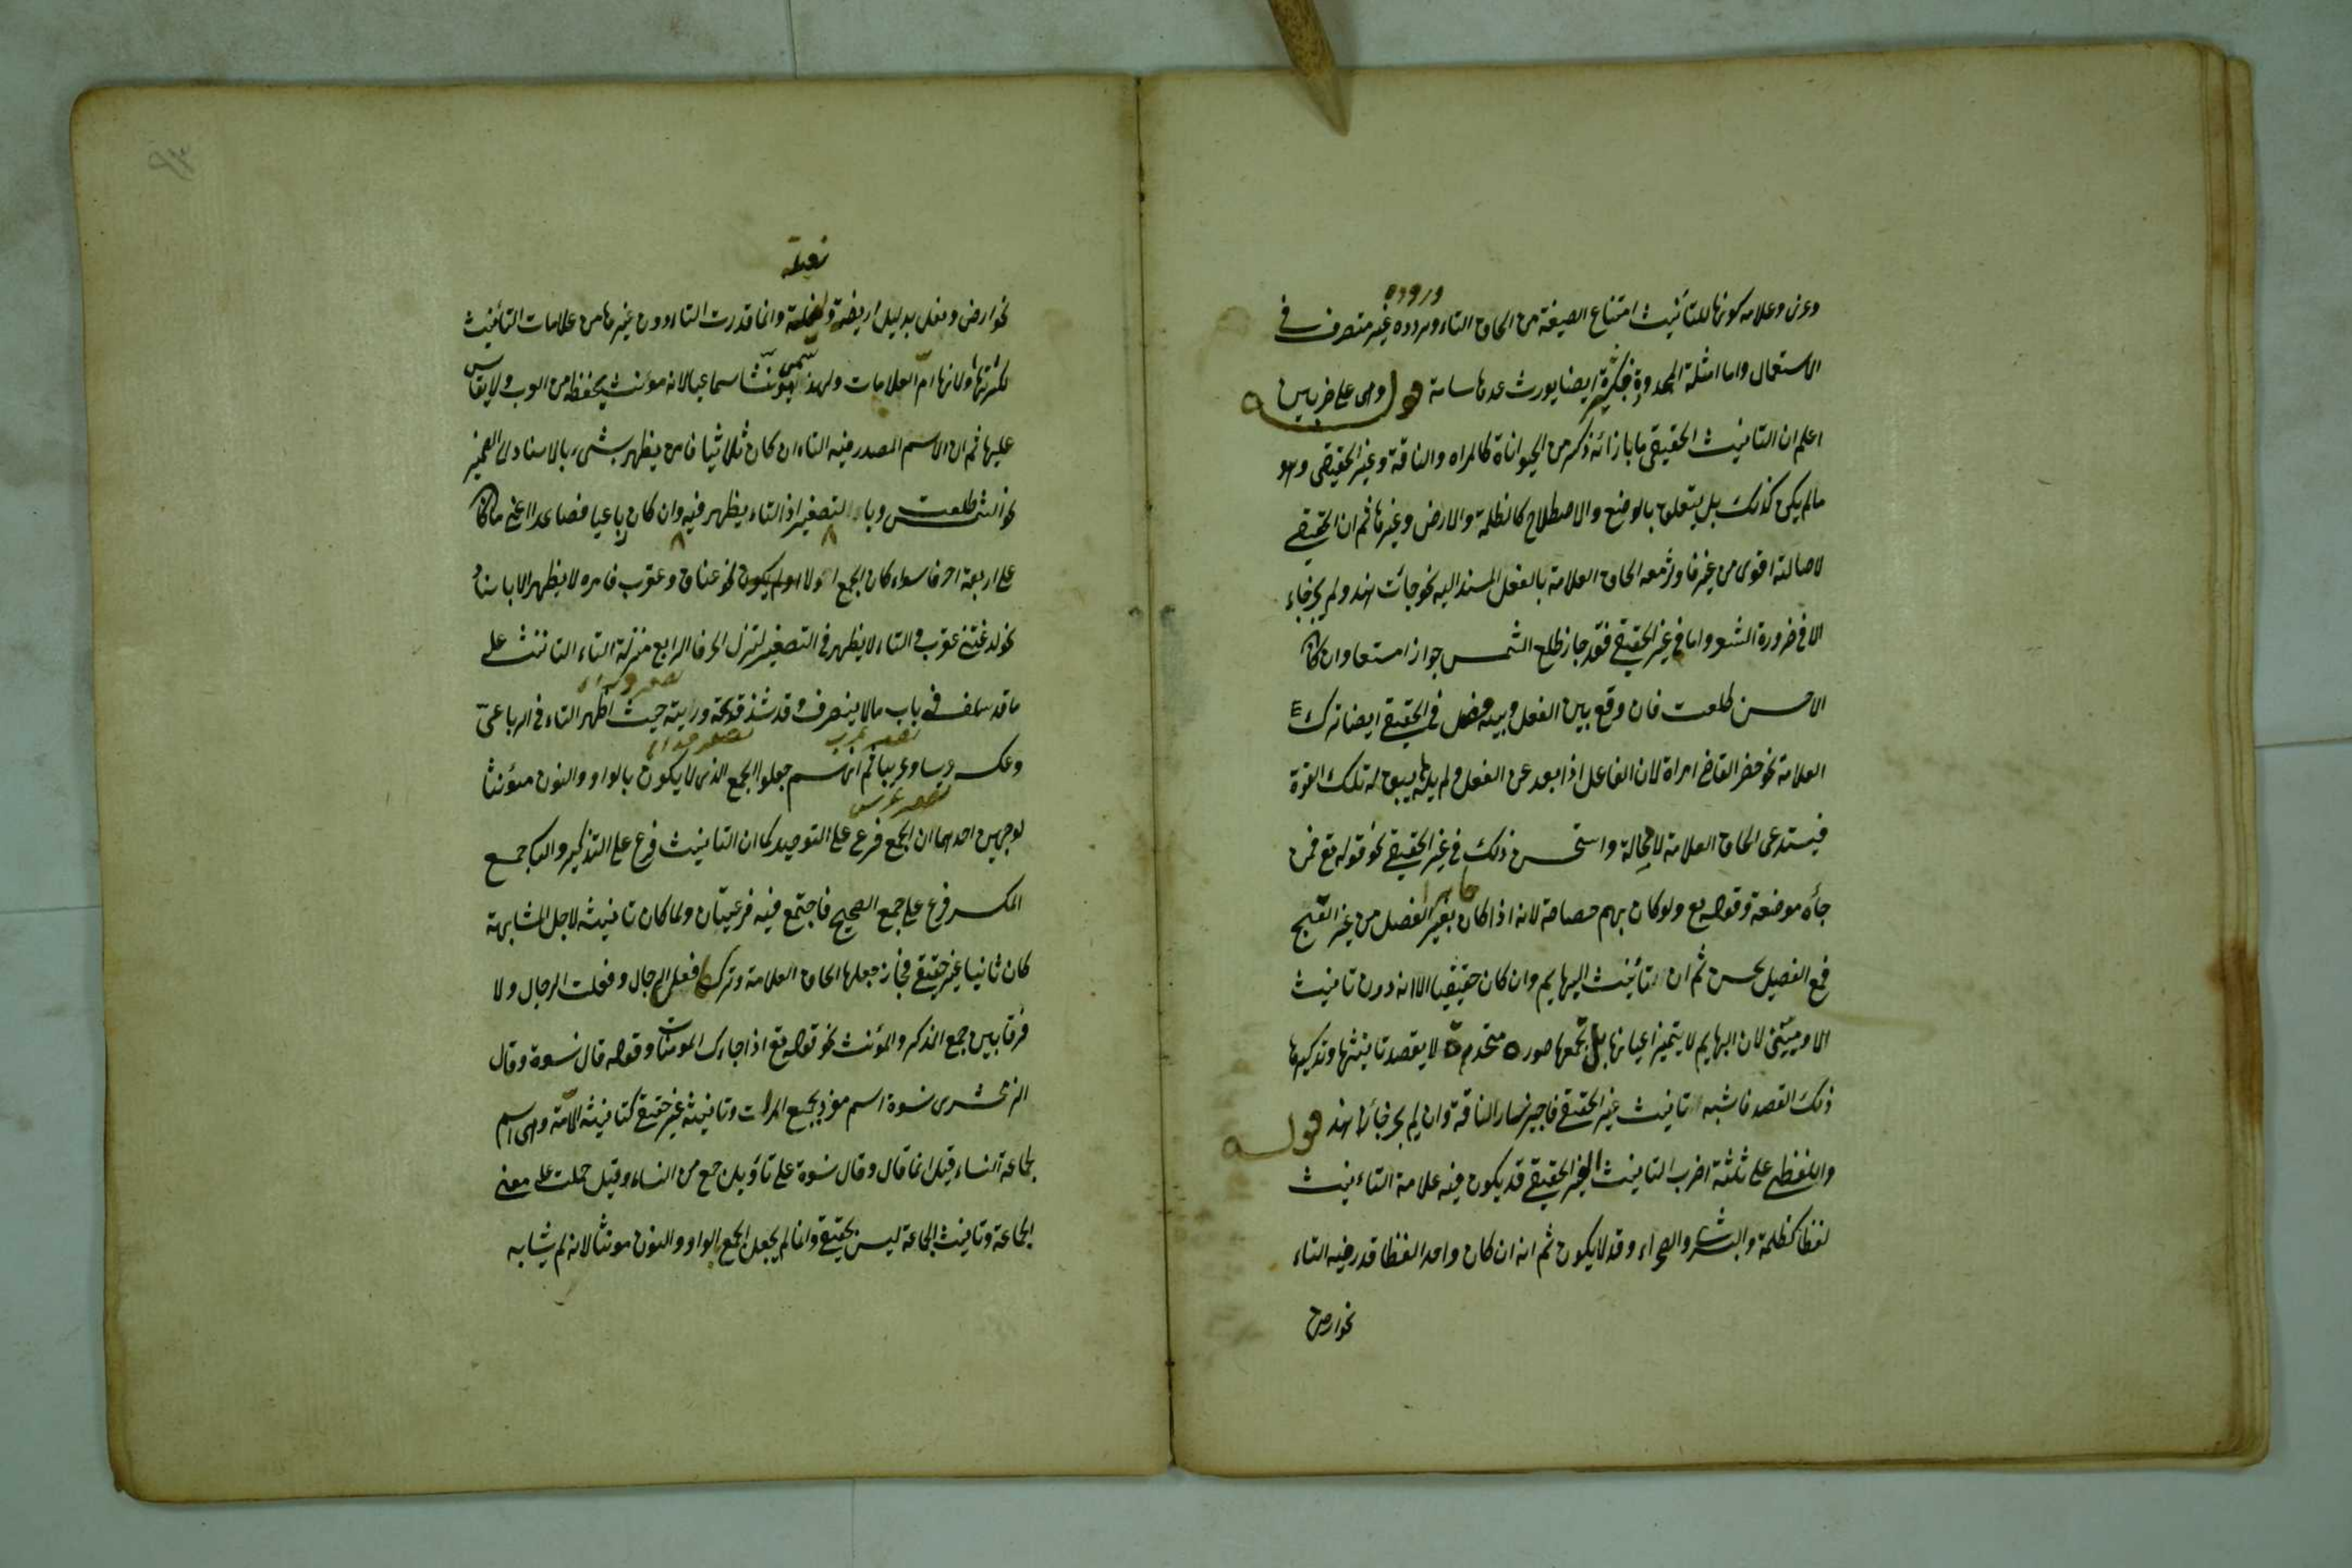 وروده
وعزى وعلامه كونها للتأنيث امتناع الصيغة من الحاق التاء ووروده غير متصرف في
الاستعمال واما امثلة المحدودة فبكثرة ايضا يورث عدها سامة قوله وهى على ضربين
اعلم ان التانيث الحقيقى ما بازائه ذكر من الحيواناة كالمراه والناقة وغير الحقيقى وهو
مالم يكن كذلك بل يتعلق بالوضع والاصطلاح كالظلمة والارض وغيرها ثم ان الحقيقي
لاصالته اقوى من غيره معه الحاق العلامة بالفعل المسند اليه نحو جائت هند ولم يجز جاء
الا فى ضرورة الشعر واما فى غير الحقيقى فقد جاز طلع الشمس جوازا متسعا وان كان
الاحسن طلعت فان وقع بين الفعل وبينه فصل فى الحقيقى ايضا ترك
العلامة نحو حضر القاضى امراة لان الفاعل اذا بعد عن الفعل ولم يله يبق له تلك القوة
فيستدعى الحاق العلامة لامحالة واستحسن ذلك فى غير الحقيقى نحو قوله تع فمن
جائزا
جاءه موعظة وقوله تع ولوكان بهم خصاصة لانه اذا كان بغير الفصل من غير القبح
فمع الفصل يحسن ثم ان تأنيث البهايم وان كان حقيقيا الا انه دون تانيث
الادميين لان البهايم لا يتميز اعيانها بل تجمعها صورة متحدة لا يقصد تانيثها وتذكيرها
ذلك القصد فاشبه تانيث غير الحقيقى فاجيز سار الناقة وان لم يجز جاء هند قوله
واللفظى على ثلثة اضرب التانيث الغير الحقيقى قد يكون فيه علامة التاءنيث
لفظا كظلمة والبشرى والصحراء وقد لايكون ثم انه ان كان واحد الفظا قدر فيه التاء
نحو ارض
نعيلة
نحو ارض ونعل بدليل اريضة ونعيلة وانما قدرت التاء دون غيرها من علامات التأنيث
لكثرتها ولانها ام العلامات ولهذا يسمى مؤنثا سماعيا لانه مؤنث يحفظ من العرب ولايقاس
عليها ثم ان الاسم المصدر فيه التاء ان كان ثلاثيا فامره يظهر بشىء بالاسناد الى الضمير
نحو الشمس طلعت وبالتصغير اذ التاء يظهر فيه وان كان رباعيا فصاعدا اعنى ما كان
على اربعة احرف سواء كان الجمع اولا نحو عناق وعقرب فامره لايظهر الا باسناد
نحو لدغتنى عقرب والتاء لايظهر فى التصغير لتنزل الحرف الرابع منزلة التاء التانيث على
تصغير وراء
ما قد سلف فى باب مالاينصرف وقد شذ قديديمة ورئية حيث اظهر التاء فى الرباعى
تصغير حرب تصغير قدام
وعكس حريب وعريب ثم انهم جعلوا الجمع الذى لايكون بالواو والنون مؤنثا
تصغير عرس
لوجهين احدهما ان الجمع فرع على التوحيد كما ان التانيث فرع على التذكير والب جمع
المكسر فرع على جمع الصحيح فاجتمع فيه فرعيتان ولما كان تانيثه لاجل المشابهة
كان تانيثا غير حقيقى فجاز جعلها الحاق العلامة وتركها فعل الرجال وفعلت الرجال ولا
فرقا بين جمع المذكر والمؤنث نحو قوله تع اذا جاءك المومنات وقوله قال نسوة وقال
الزمخشرى نسوة اسم مفرد لجمع المراة وتانيثه غير حقيقى كتانيث الامة وهى اسم
لجماعة النساء قيل انما قال وقال نسوة على تأويل جمع من النساء وقيل حملت على معنى
الجماعة وتانيث الجماعة ليس بحقيقى وانما لم يجعل الجمع بالواو والنون مونثا لانه لم يشابه